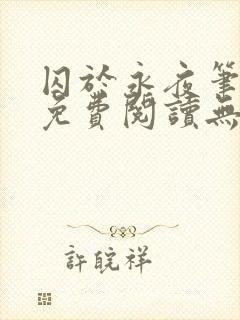 囚於永夜筆
免費閱讀無
許皖祥